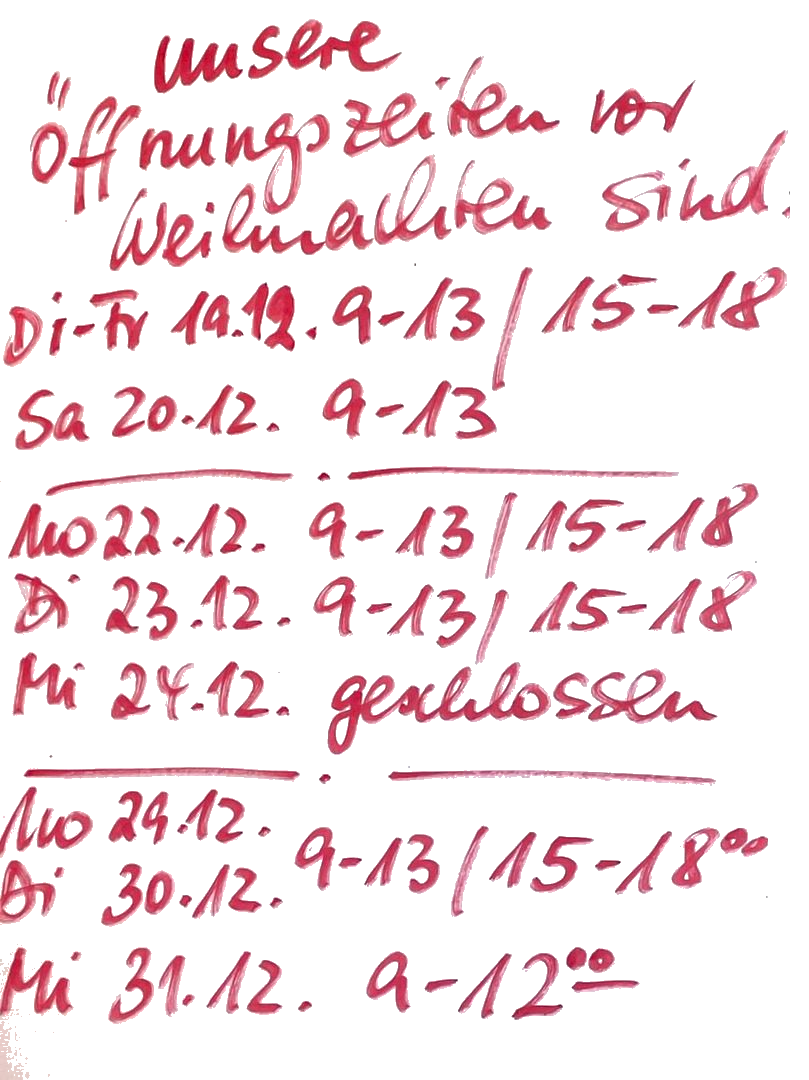 unsere
Öffnungszeiten vor
Weihnachten sind:
Di-Fr 19.12. 9-13 / 15-18
Sa 20.12. 9-13
Mo 22.12. 9-13 / 15-18
Di 23.12. 9-13 / 15-18
Mi 24.12. geschlossen
Mo 29.12.
9-13 / 15-18⁰⁰
Di 30.12.
Mi 31.12. 9-12⁰⁰